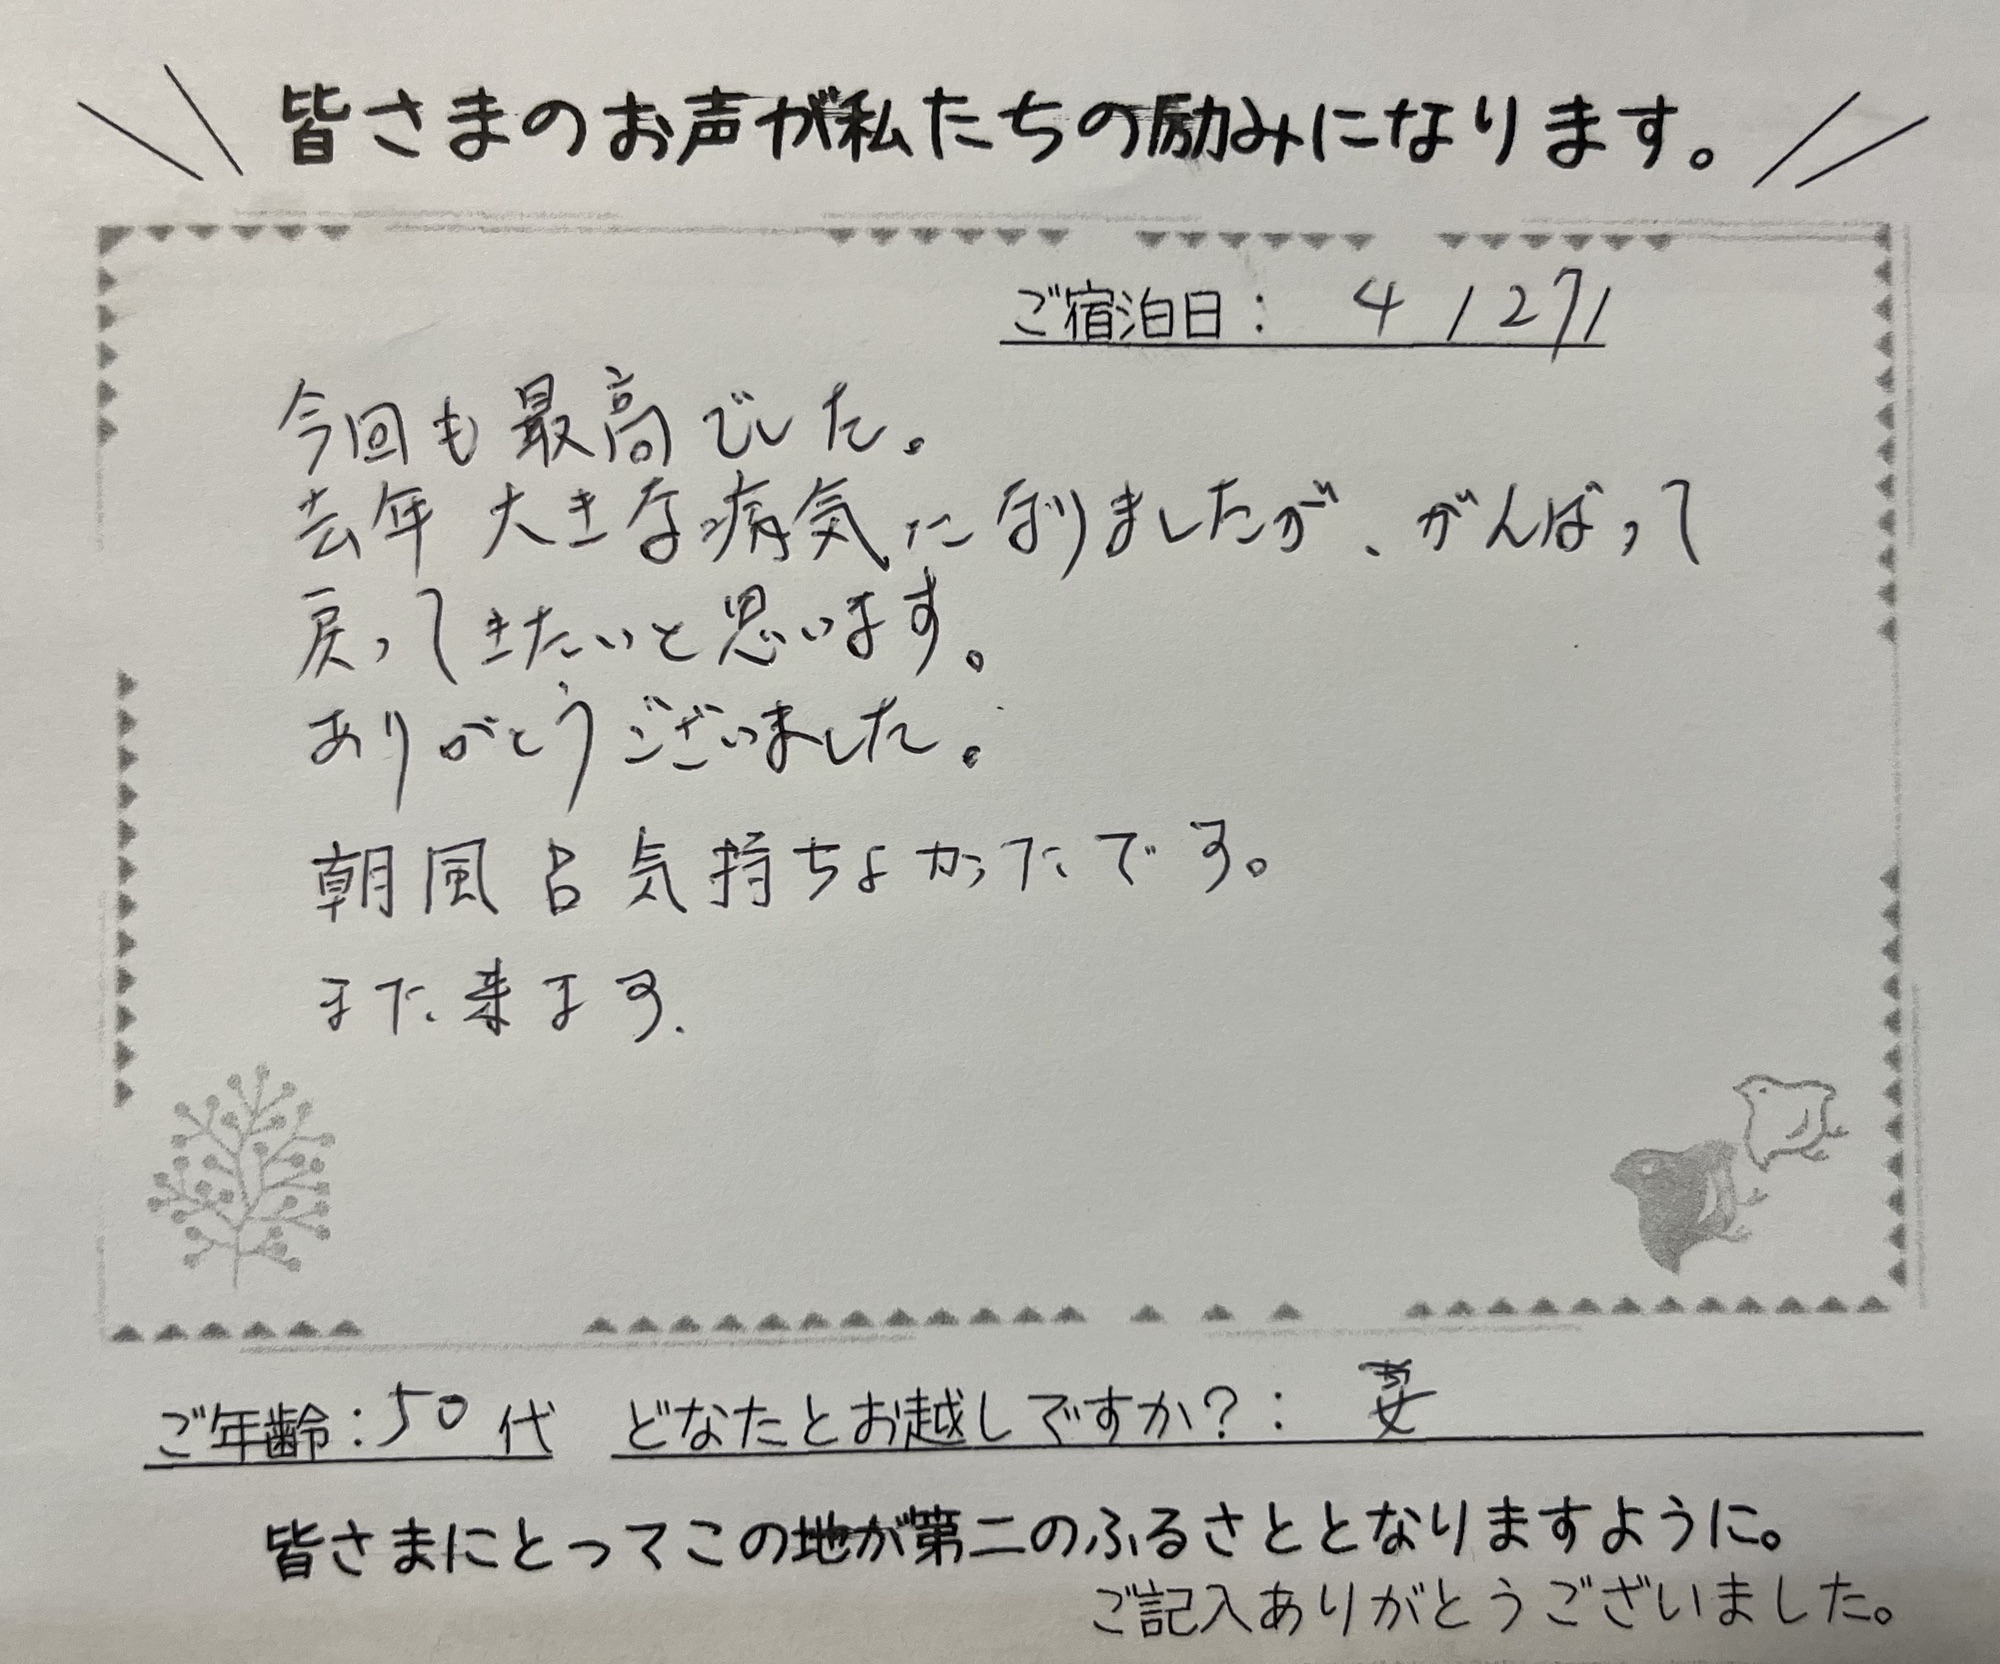 皆さまのお声が私たちの励みになります。
ご宿泊日: 4/27/
今回も最高でした。
去年大きな病気になりましたが、がんばって
戻ってきたいと思います。
ありがとうございました。
朝風呂気持ちよかったです。
また来ます.
ご年齢:50代 どなたとお越しですか?: 妻
皆さまにとってこの地が第二のふるさととなりますように。
ご記入ありがとうございました。